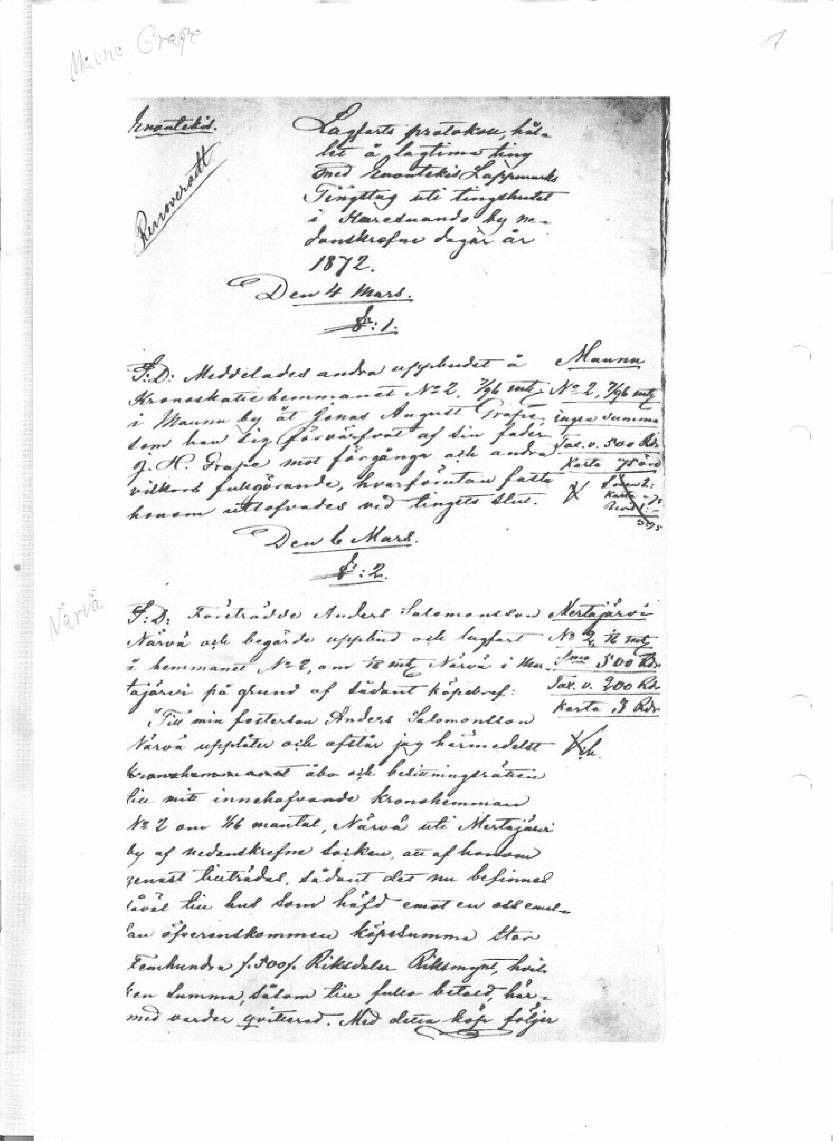 Mauno Grape
1
Enontekis.
Renoveradt
Lagfarts protokoll, hål-
let å lagtima ting
med Enontekis Lappmarks
Tingslag uti tingshuset
i Karesuando by ne-
danskrefne dagar år
1872.
Den 4 Mars.
§: 1.
S:D: Meddelades andra uppbudet å
Kronoskattehemmanet No 2, 7/96 mtl
i Maunu by åt Jonas August Grape,
som han sig förvärfvat af sin fader
J. H. Grape mot förgångs och andra
vilkors fullgörande, hvarförutan fasta
honom utlofvades vid tingets slut.
Maunu
No 2, 7/96 mtl
ingen summa
Tax. v. 500 Rdr
Karta 75 öre
Den 6 Mars.
§: 2.
Närvä
S:D: Företrädde Anders Salomonsson
Närvä och begärde uppbud och lagfart
å hemmanet No 2, om 1/16 mtl Närvä i Mer-
tajärvi på grund af sådant köpebref:
"Till min fosterson Anders Salomonsson
Närvä upplåter och afstår jag härmedelst
åbo och besittningsrätten
till mitt innehafvande kronohemman
No 2 om 1/16 mantal, Närvä uti Mertajärvi
by af nedanskrefne socken, att af honom
genast tillträdas, sådant det nu befinnes
såväl till hus som häfd emot en oss emel-
lan öfverenskommen köpesumma stor
Femhundra /:500/: Riksdaler Riksmynt, hvil-
ken summa, såsom till fullo betald, här-
med varder qvitterad. Med detta köp följer
Mertajärvi
No 2, 1/16 mtl
Sma 500 Rdr.
Tax. v. 200 Rdr.
Karta 3 Rdr